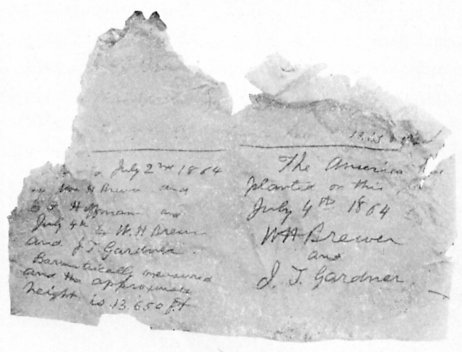 July 2nd 1864
W H Brewer and
Hoffmann and
July 4th by W. H. Brewer
and J. T. Gardner.
Barometrically measured
and the approximate
height is 13.650 ft
The American
planted on this
July 4th 1864
W H Brewer
and
J. T. Gardner.